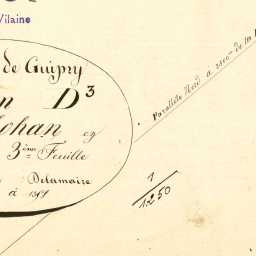 Vilaine
de Guipry
D 3
ohan
3ème Feuille
Delamaire
à
Parallèle Nord à
de la
1
1250